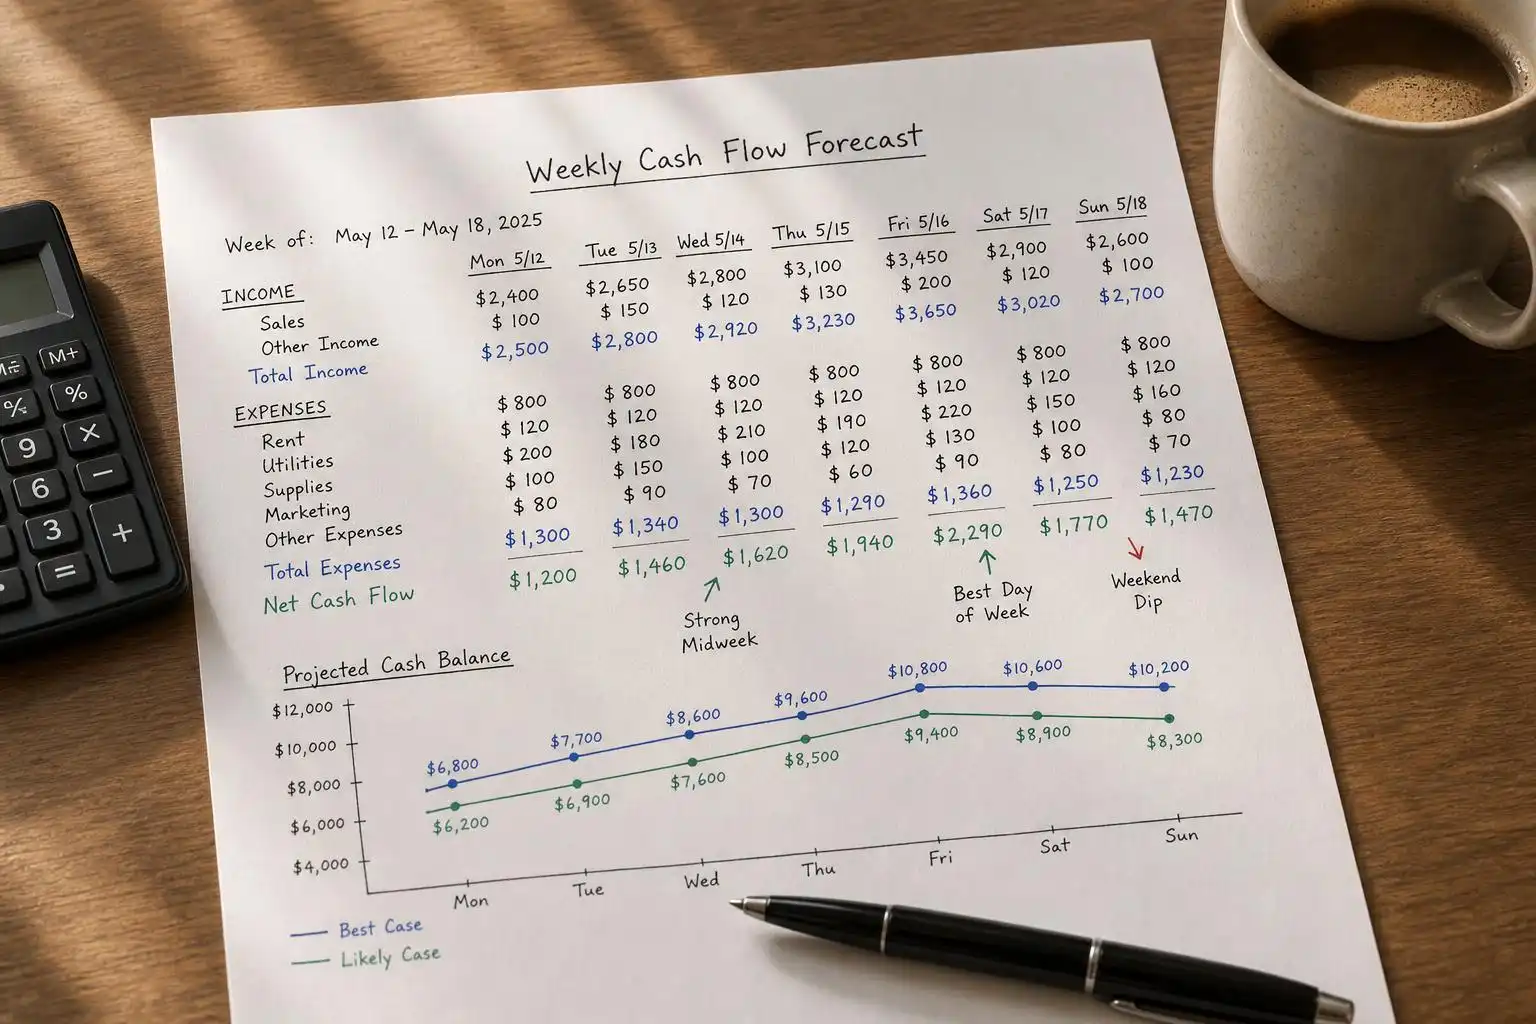 Weekly Cash Flow Forecast
Week of: May 12 – May 18, 2025
Mon 5/12 Tue 5/13 Wed 5/14 Thu 5/15 Fri 5/16 Sat 5/17 Sun 5/18
INCOME
Sales $2,400 $2,650 $2,800 $3,100 $3,450 $2,900 $2,600
Other Income $ 100 $ 150 $ 120 $ 130 $ 200 $ 120 $ 100
Total Income $2,500 $2,800 $2,920 $3,230 $3,650 $3,020 $2,700
EXPENSES
Rent $ 800 $ 800 $ 800 $ 800 $ 800 $ 800 $ 800
Utilities $ 120 $ 120 $ 120 $ 120 $ 120 $ 120 $ 120
Supplies $ 200 $ 180 $ 210 $ 190 $ 220 $ 150 $ 160
Marketing $ 100 $ 150 $ 100 $ 120 $ 130 $ 100 $ 80
Other Expenses $ 80 $ 90 $ 70 $ 60 $ 90 $ 80 $ 70
Total Expenses $1,300 $1,340 $1,300 $1,290 $1,360 $1,250 $1,230
Net Cash Flow $1,200 $1,460 $1,620 $1,940 $2,290 $1,770 $1,470
Strong
Midweek
Best Day
of Week
Weekend
Dip
Projected Cash Balance
$12,000
$10,000
$8,000
$6,000
$4,000
$6,800 $7,700 $8,600 $9,600 $10,800 $10,600 $10,200
$6,200 $6,900 $7,600 $8,500 $9,400 $8,900 $8,300
Mon Tue Wed Thu Fri Sat Sun
Best Case
Likely Case
M+
%
9 ×
6 −
3 +
=